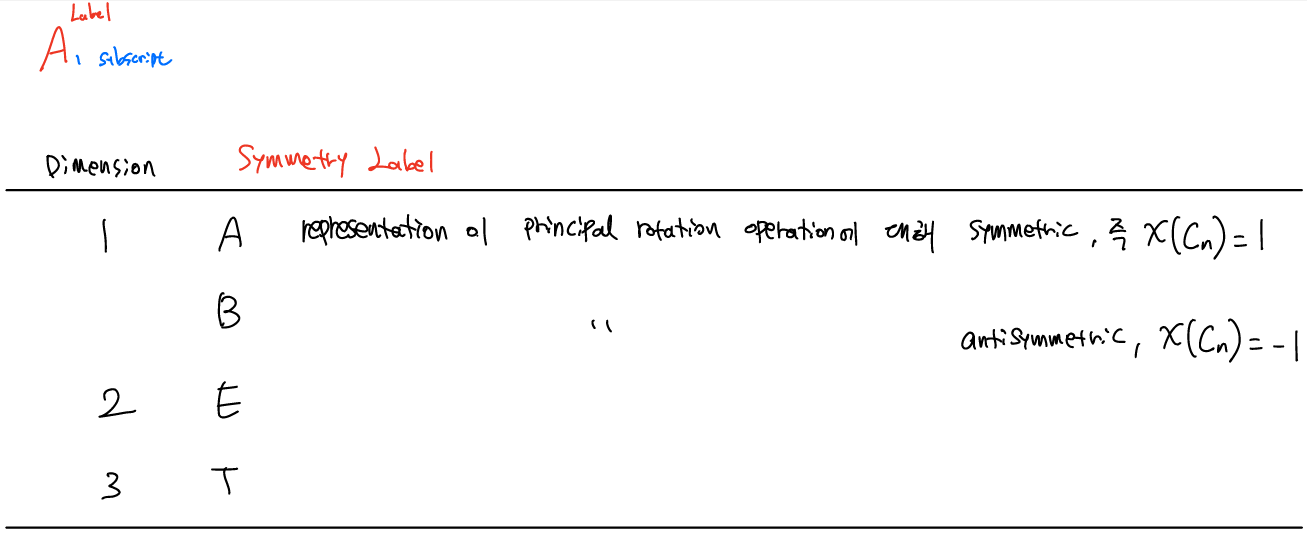 Label
A₁ subscript
Dimension Symmetry Label
1 A representation 이 principal rotation operation에 대해 symmetric, 즉 χ(Cₙ)=1
B " antisymmetric, χ(Cₙ)=-1
2 E
3 T